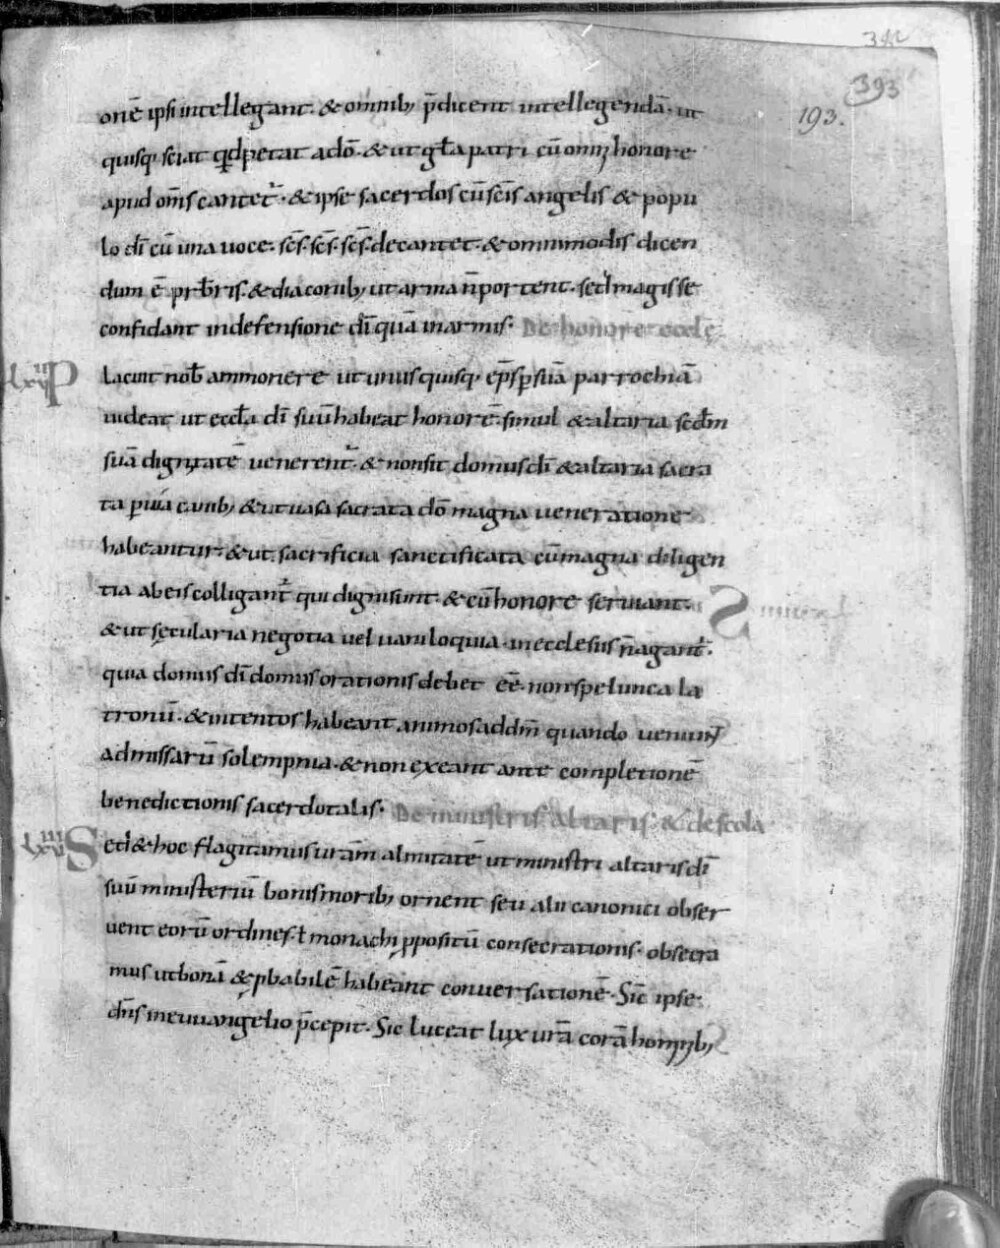 342
393
193.
onē ipsi intellegant. & omnib; p̄dicent intellegendā. ut
quisq; sciat qđ petat a dō. & ut gła patri cū omni honore
apud om̄s cantet᷑. & ipse sacerdos cū scīs angelis & popu
lo dī cū una uoce. scs̄. scs̄. scs̄. decantet. & omnimodis dicen
dum ē prb̄ris. & diaconib; ut arma n̄ portent. sed magis se
confidant in defensione dī quā in armis. De honore eccłę
lxvii Placuit nob̄ ammonere ut unusquisq; ep̄s p suā parrochiā
uideat ut eccła dī suū habeat honorē. simul & altaria scđm
suā dignitatē uenerent᷑. & non sit domus dī & altaria sacra
ta puia canib; & ut uasa sacrata dō magna ueneratione
habeantur. & ut sacrificia sanctificata cū magna diligen
tia ab eis colligant᷑ qui digni sunt. & cū honore seruant᷑.
& ut sęcularia negotia uel uaniloquia in ecclesiis n̄ agant᷑.
quia domus dī domus orationis debet eē. non spelunca la
tronū. & intentos habeant animos ad dm̄ quando ueniunt
ad missarū solempnia. & non exeant ante completionē
benedictionis sacerdotalis. De ministris altaris & de scola
lxviii Sed & hoc flagitamus uram̄ almitatē ut ministri altaris dī
suū ministeriū bonis morib; ornent seu alii canonici obser
uent eorū ordines. ł monachi ppositū consecrationis. obsecra
mus ut bonā & pbabilē habeant conuersationē. Sic̄ ipse
dn̄s in euuangelio p̄cepit. Sic luceat lux urā corā hominib;